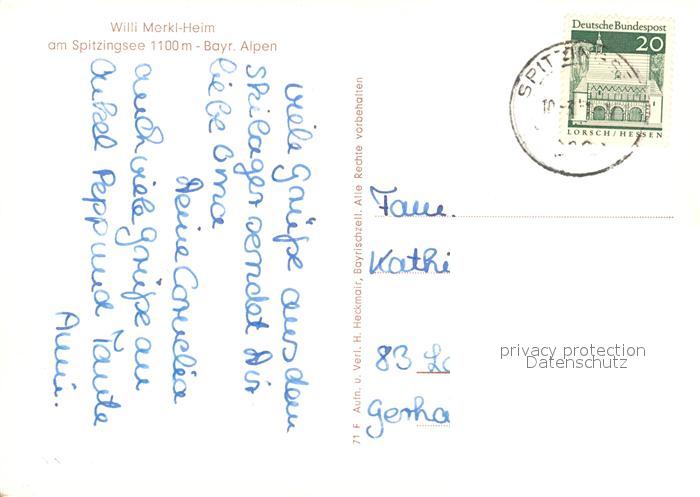 Willi Merkl-Heim
am Spitzingsee 1100 m - Bayr. Alpen
viele Grüße aus dem
Skilager sendet dir
liebe Oma
deine Cornelia
auch viele Grüße an
Onkel Pepp und Tante
Anni.
71 F Aufn. u. Verl. H. Heckmair, Bayrischzell. Alle Rechte vorbehalten
Deutsche Bundespost
20
LORSCH/HESSEN
Fam.
Kathi
83 La
Gerha
privacy protection
Datenschutz